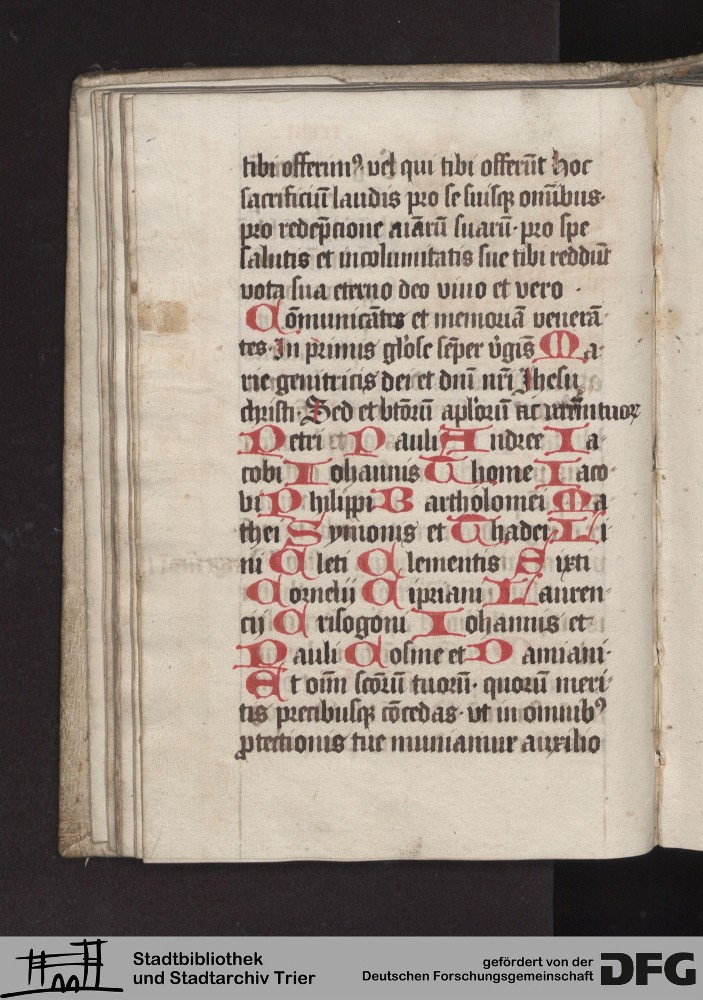 tibi offerimꝰ vel qui tibi offerūt hoc
sacrificiū laudis pro se suisqꝫ omībus·
pro redēpcione aīarū suarū· pro spe
salutis et incolumitatis sue tibi reddūt
vota sua eterno deo viuo et vero ·
Cōmunicātes et memoriā venerā
tes· In primis gl'ose sēper v̓gīs Ma
rie genitricis dei et dnī nr̄i Jhesu
christi· Sed et bt̄orū apl'orū ac
Petri et Pauli Andree Ia
cobi Iohannis Thome Iaco
bi Philippi Bartholomei Ma
thei Symonis et Thadei Li
ni Cleti Clementis Sixti
Cornelij Cipriani Lauren
cij Crisogoni Iohannis et
Pauli Cosme et Damiani·
Et oīm scōrū tuorū· quorū meri
tis precibusqꝫ cōcedas· vt in omnibꝰ
ꝓtectionis tue muniamur auxilio
Stadtbibliothek
und Stadtarchiv Trier
gefördert von der
Deutschen Forschungsgemeinschaft
DFG